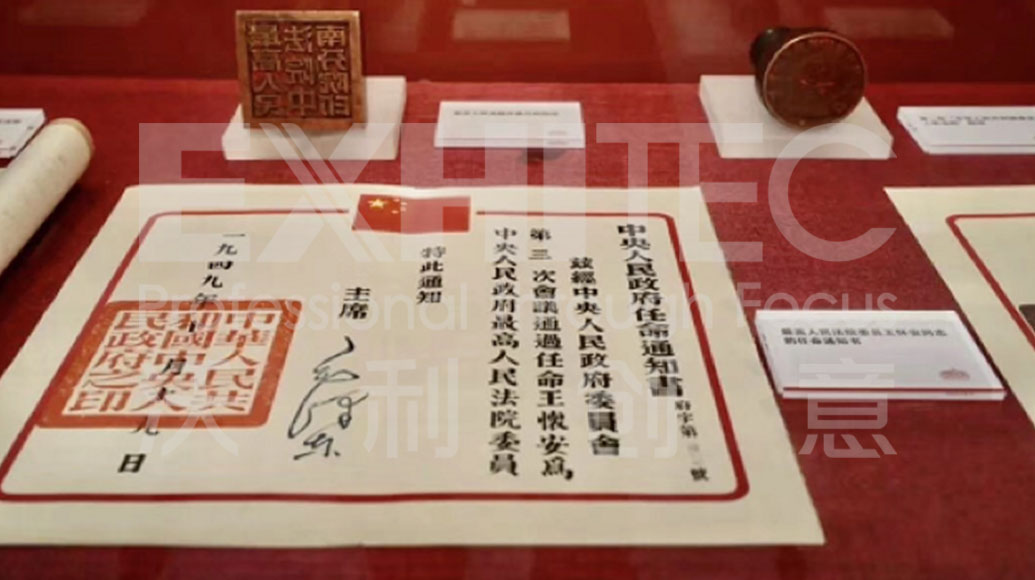 最高人民
法院中
南分院印
中央人民政府任命通知書 府字第 號
茲經中央人民政府委員會
第三次會議通過任命王懷安爲
中央人民政府最高人民法院委員
特此通知
主席 毛澤東
一九四九年十月十九日
中華人民共
和國中央人
民政府之印
最高人民法院委员王怀安同志
的任命通知书
EXHITEC
Professional through Focus
利创意